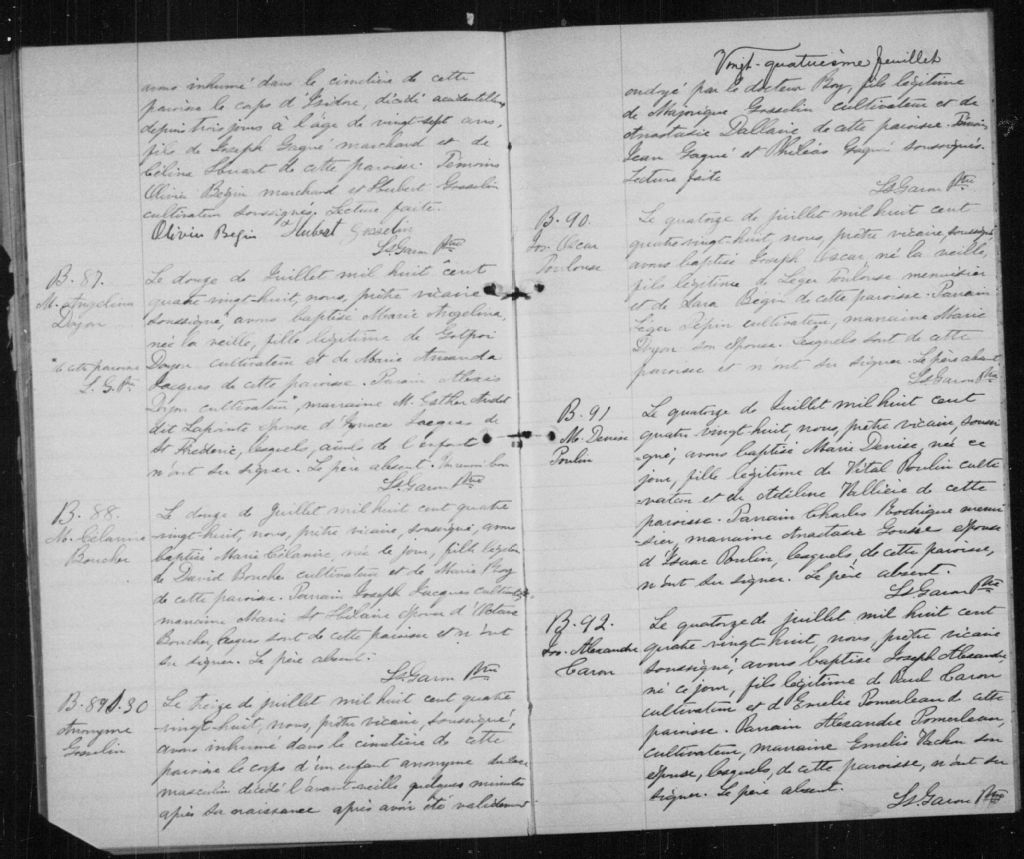 avons inhumé dans le cimetière de cette
paroisse le corps d'Isidore, décédé accidentellem
depuis trois jours à l'âge de vingt-sept ans,
fils de Joseph Gagné marchand et de
Célina de cette paroisse. Témoins
Olivier Bégin marchand et Hubert Gosselin
cultivateur soussignés. Lecture faite.
Olivier Begin Hubert Gosselin
Ls Garon Ptre
B. 87.
M. Angelina
Doyon
Le douze de Juillet mil huit cent
quatre vingt-huit, nous, prêtre vicaire
soussigné, avons baptisé Marie Angelina,
née la veille, fille légitime de
Doyon cultivateur et de Marie Amanda
Jacques de cette paroisse. Parrain Alexis
Doyon cultivateur, marraine M. Esther
dit Lapointe épouse d'Ignace Jacques de
St Fréderic, lesquels, aïeuls de l'enfant
n'ont su signer. Le père absent. Un renvoi bon
Ls Garon Ptre
de cette paroisse
L. G. Ptr
B. 88.
M. Célanire
Boucher
Le douze de Juillet mil huit cent quatre
vingt-huit, nous, prêtre vicaire, soussigné, avons
baptisé Marie Célanire, née ce jour, fille légitime
de David Boucher cultivateur et de Marie Roy
de cette paroisse. Parrain Joseph Jacques cultivateur
marraine Marie St Hilaire épouse d'
Boucher, lesquels sont de cette paroisse et n'ont
su signer. Le père absent.
Ls Garon Ptre
B. 89 S. 30
Anonyme
Gosselin
Le treize de juillet mil huit cent quatre
vingt-huit, nous, prêtre vicaire, soussigné,
avons inhumé dans le cimetière de cette
paroisse le corps d'un enfant anonyme du sexe
masculin décédé l'avant-veille quelques minutes
après sa naissance après avoir été validement
Vingt-quatrième feuillet
ondoyé par le docteur Roy, fils légitime
de Majorique Gosselin cultivateur et de
Anastasie Dallaire de cette paroisse. Témoins
Jean Gagné et Philéas Gagné soussignés.
Lecture faite
Ls Garon Ptre
B. 90.
Jos. Oscar
Toulouse
Le quatorze de juillet mil huit cent
quatre vingt-huit, nous, prêtre vicaire, soussigné
avons baptisé Joseph Oscar, né la veille,
fils légitime de Léger Toulouse menuisier
et de Lara Bégin de cette paroisse. Parrain
Léger Pépin cultivateur, marraine Marie
Doyon son épouse. Lesquels sont de cette
paroisse et n'ont su signer. Le père absent
Ls Garon Ptre
B. 91
M. Denise
Poulin
Le quatorze de Juillet mil huit cent
quatre vingt-huit, nous, prêtre vicaire soussi-
gné, avons baptisé Marie Denise, née ce
jour, fille légitime de Vital Poulin culti-
vateur et de Adéline Vallière de cette
paroisse. Parrain Charles Rodrigue menui-
sier, marraine Anastasie épouse
d'Isaac Poulin, lesquels, de cette paroisse,
n'ont su signer. Le père absent.
Ls Garon Ptre
B. 92.
Jos. Alexandre
Caron
Le quatorze de juillet mil huit cent
quatre vingt-huit, nous, prêtre vicaire
soussigné, avons baptisé Joseph Alexandre,
né ce jour, fils légitime de Paul Caron
cultivateur et d'Emelie Pomerleau de cette
paroisse. Parrain Alexandre Pomerleau,
cultivateur, marraine Emelie Vachon son
épouse, lesquels, de cette paroisse, n'ont su
signer. Le père absent.
Ls Garon Ptre